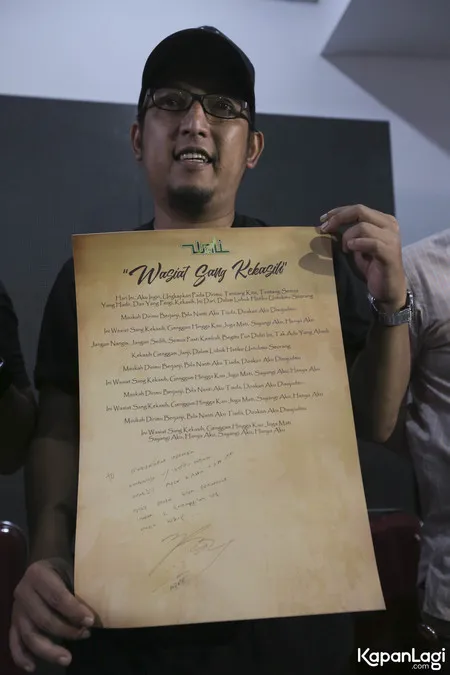 Wali
"Wasiat Sang Kekasih"
Hari Ini, Aku Ingin, Ungkapkan Pada Dirimu, Tentang Kita, Tentang Semua
Yang Hadir, Dan Yang Pergi, Kekasih, Ini Dari Dalam Lubuk Hatiku Untukmu Seorang
Maukah Dirimu Berjanji, Bila Nanti Aku Tiada, Doakan Aku Disujudmu
Ini Wasiat Sang Kekasih, Genggam Hingga Kau, Jaga Mati, Sayangi Aku, Hanya Aku
Jangan Nangis, Jangan Sedih, Semua Pasti Kembali, Begitu Pun Diriku Ini, Tak Ada Yang Abadi
Kekasih Genggam, Janji Dalam Lubuk Hatiku Untukmu Seorang
Maukah Dirimu Berjanji, Bila Nanti Aku Tiada, Doakan Aku Disujudmu
Ini Wasiat Sang Kekasih, Genggam Hingga Kau, Jaga Mati, Sayangi Aku, Hanya Aku
Maukah Dirimu Berjanji, Bila Nanti Aku Tiada, Doakan Aku Disujudmu
Ini Wasiat Sang Kekasih, Genggam Hingga Kau, Jaga Mati, Sayangi Aku, Hanya Aku
Maukah Dirimu Berjanji, Bila Nanti Aku Tiada, Doakan Aku Disujudmu
Ini Wasiat Sang Kekasih, Genggam Hingga Kau, Jaga Mati
Sayangi Aku, Hanya Aku, Sayangi Aku, Hanya Aku
KapanLagi
.com